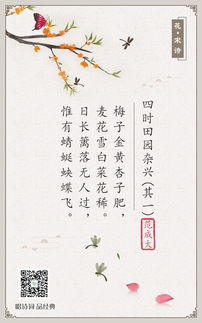 花·宋诗
四时田园杂兴(其一)
范成大
梅子金黄杏子肥,
麦花雪白菜花稀。
日长篱落无人过,
惟有蜻蜓蛱蝶飞。
唱诗词 品经典